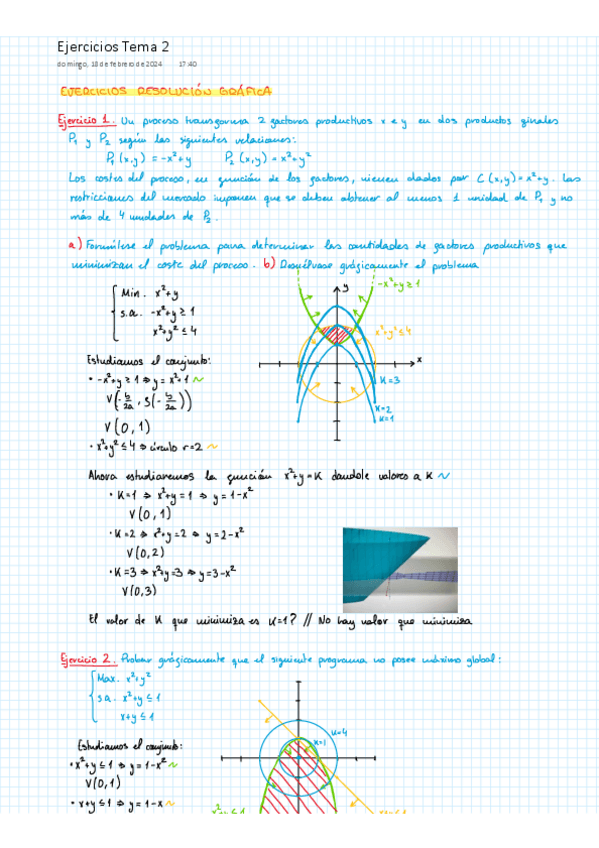 Ejercicios Tema 2
domingo, 18 de febrero de 2024 17:40
EJERCICIOS RESOLUCIÓN GRÁFICA
Ejercicio 1. Un proceso transforma 2 factores productivos x e y en dos productos finales
P₁ y P₂ según las siguientes relaciones:
P₁(x,y) = -x²+y P₂(x,y) = x²+y²
Los costes del proceso, en función de los factores, vienen dados por C(x,y) = x²+y. Las
restricciones del mercado imponen que se deben obtener al menos 1 unidad de P₁ y no
más de 4 unidades de P₂.
a) Formúlese el problema para determinar las cantidades de factores productivos que
minimizan el coste del proceso. b) Resuélvase gráficamente el problema
Min. x²+y
s.a. -x²+y ≥ 1
x²+y² ≤ 4
-x²+y ≥ 1
y
x²+y² ≤ 4
x
K=3
K=2
K=1
Estudiamos el conjunto:
• -x²+y ≥ 1 ⇒ y = x²+1 ~
V(-b/2a, f(-b/2a))
V(0,1)
• x²+y² ≤ 4 ⇒ círculo r=2 ~
Ahora estudiaremos la función x²+y=K dandole valores a K ~
• K=1 ⇒ x²+y=1 ⇒ y=1-x²
V(0,1)
• K=2 ⇒ x²+y=2 ⇒ y=2-x²
V(0,2)
• K=3 ⇒ x²+y=3 ⇒ y=3-x²
V(0,3)
El valor de K que minimiza es K=1? // No hay valor que minimiza
Ejercicio 2. Probar gráficamente que el siguiente programa no posee máximo global:
Max. x²+y²
s.a. x²+y ≤ 1
x+y ≤ 1
K=4
K=1
Estudiamos el conjunto:
• x²+y ≤ 1 ⇒ y = 1-x² ~
V(0,1)
• x+y ≤ 1 ⇒ y = 1-x ~